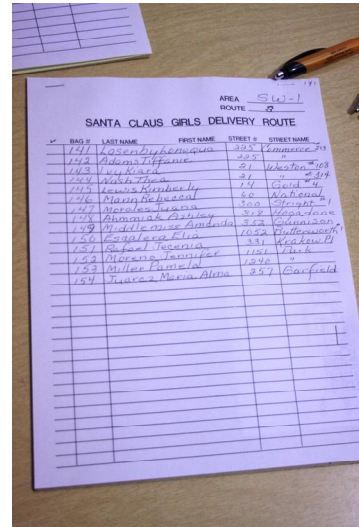 AREA SW-1
ROUTE 8
SANTA CLAUS GIRLS DELIVERY ROUTE
✓ BAG # LAST NAME FIRST NAME STREET # STREET NAME
141 225 Commerce
142 Adams Tiffanie 225 "
143 Ivy Kiara 21 Weston #108
144 Nash Thea 21 " #314
145 Lewis Kimberly 14 Gold #4
146 Mann Rebecca 60 National
147 Morales Juana 500 Straight #1
148 Ashley 318 Hogadone
149 Middlemiss Amanda 352 Gunnison
150 Esqalera Elia 1052 Butterworth
151 Rafael Tecenia 331 Krakow Pl
152 Moreno Jennifer 1151 Park
153 Miller Pamela 1240 "
154 Juarez Maria Alma 257 Garfield